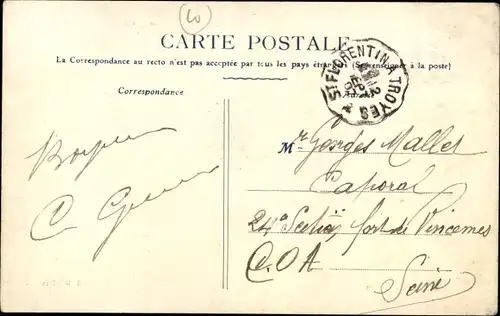 CARTE POSTALE
La Correspondance au recto n'est pas acceptée par tous les pays étrangers (Se renseigner à la poste)
ST FLORENTIN A TROYES
12
SEPT
Correspondance
Bonjour
Mr Georges Mallet
Caporal
24e Section fort de Vincennes
C.O.A
Seine